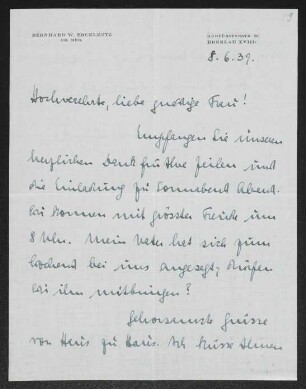 BERNHARD W.
DR. MED.
BRESLAU XVIII
8.6.39.
Hochverehrte, liebe gnädige Frau!
Empfangen Sie unseren
herzlichen Dank für Ihre Zeilen und
die Einladung zu Sonnabend Abend.
Wir kommen mit grösster Freude um
8 Uhr. Mein Vater hat sich zum
bei uns angesagt; dürfen
wir ihn mitbringen?
Gehorsamste Grüsse
von Haus zu Haus. Ich küsse Ihnen